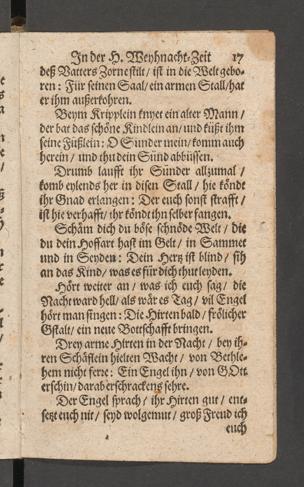 In der H. Weyhnacht-Zeit 17
deß Vatters Zorne stilt / ist in die Welt gebo-
ren : Für seinen Saal / ein armen Stall / hat
er ihm außerkohren.
Beym Kripplein knyet ein alter Mann /
der bat das schöne Kindlein an / und küßt ihm
seine Füßlein : O Sünder mein / komm auch
herein / und thu dein Sünd abbüssen.
Drumb laufft ihr Sünder allzumal /
komb eylends her in disen Stall / hie köndt
ihr Gnad erlangen : Der euch sonst strafft /
ist hie verhafft / ihr köndt ihn selber fangen.
Schäm dich du böse schnöde Welt / die
du dein Hoffart hast im Gelt / in Sammet
und in Seyden : Dein Hertz ist blind / sih
an das Kind / was es für dich thut leyden.
Hört weiter an / was ich euch sag / die
Nacht ward hell / als wär es Tag / vil Engel
hört man singen : Die Hirten bald / frölicher
Gstalt / ein neue Bottschafft bringen.
Drey arme Hirten in der Nacht / bey ih-
ren Schäflein hielten Wacht / von Bethle-
hem nicht ferne : Ein Engel ihn / von GOtt
erschin / darab erschrackens sehre.
Der Engel sprach / ihr Hirten gut / ent-
setzt euch nit / seyd wolgemut / groß Freud ich
euch